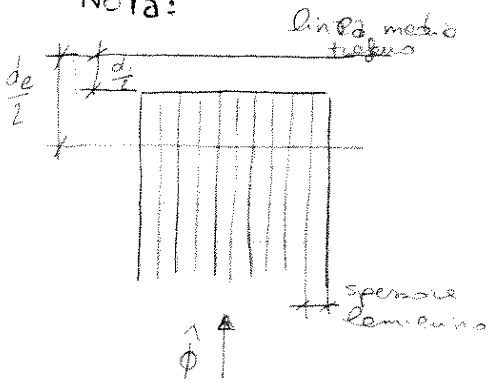 Nota:
linea medio
traferro
de/2
di/2
spessore
lamierino
ϕ̂